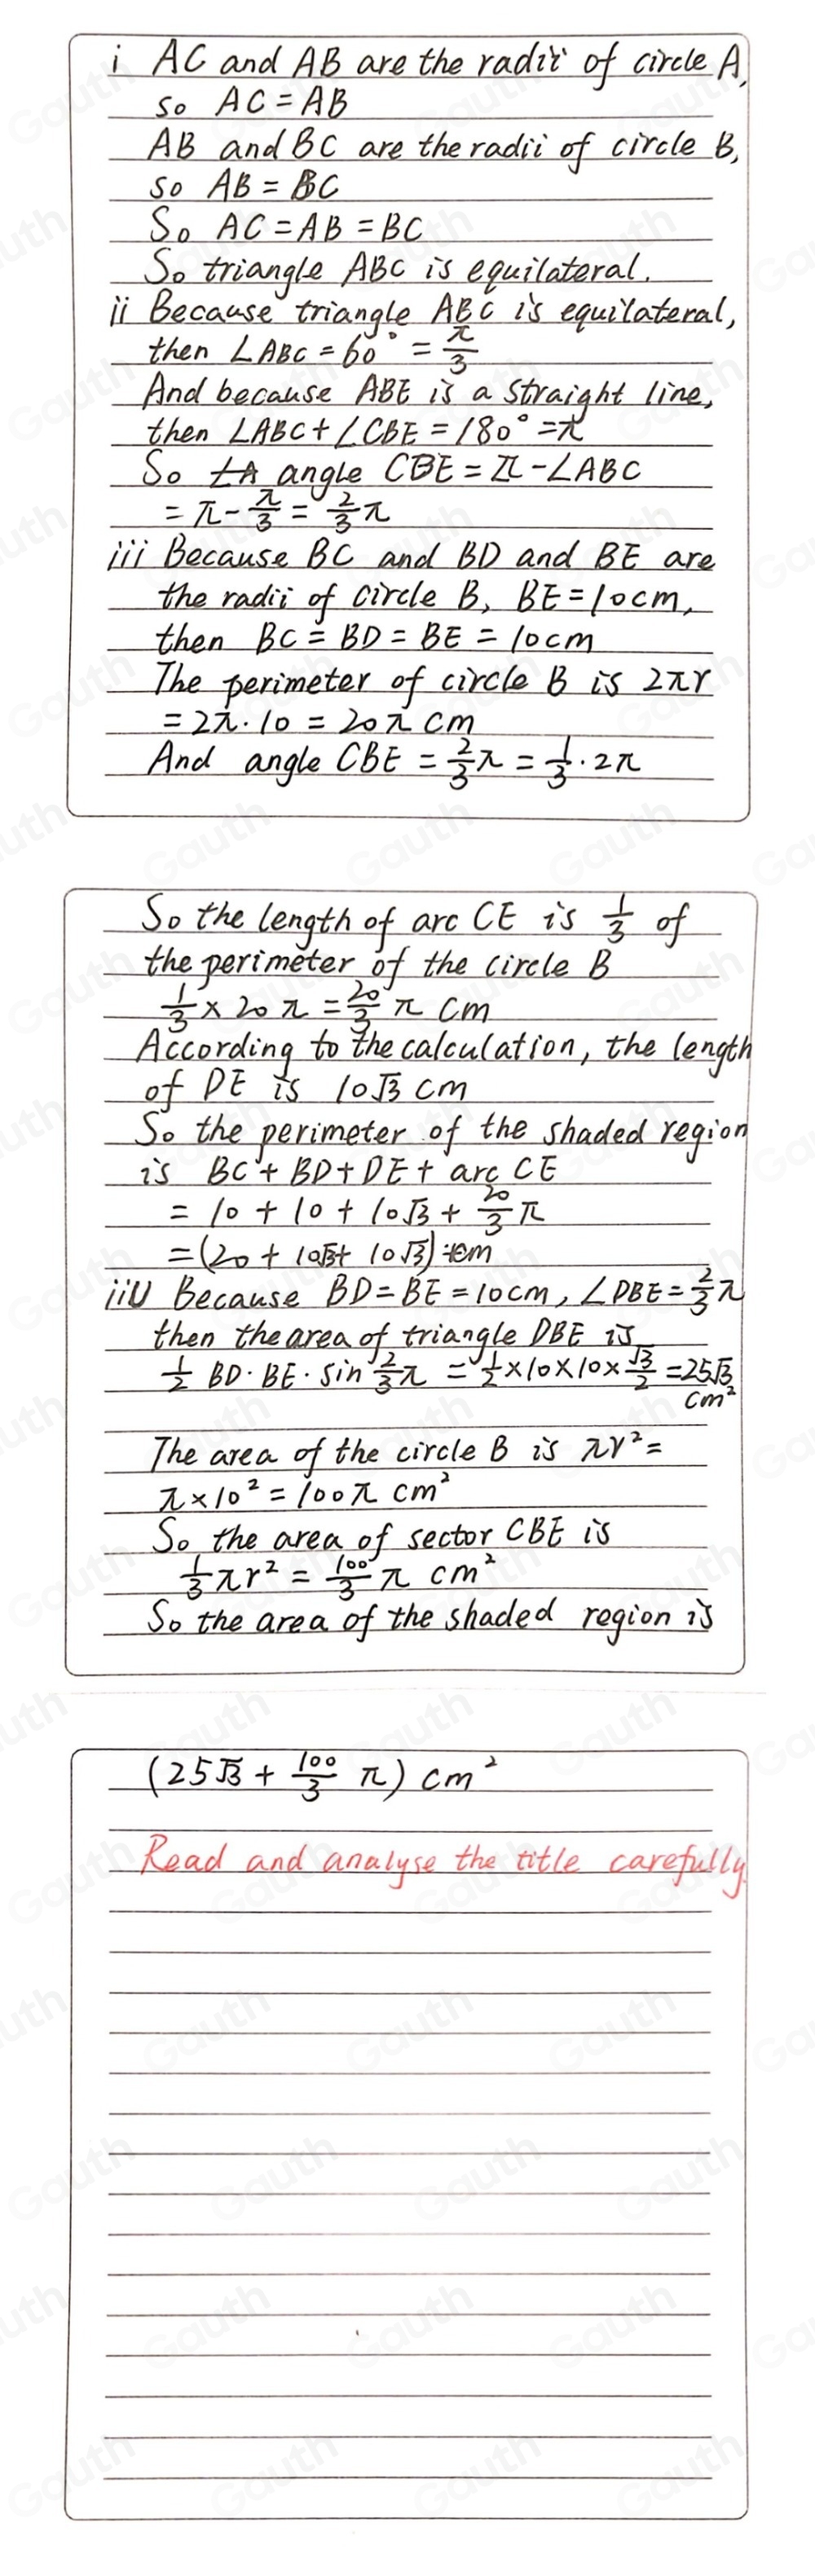 i AC and AB are the radii of circle A,
so AC = AB
AB and BC are the radii of circle B,
so AB = BC
So AC = AB = BC
So triangle ABC is equilateral.
ii Because triangle ABC is equilateral,
then ∠ABC = 60° = π/3
And because ABE is a straight line,
then ∠ABC + ∠CBE = 180° = π
So angle CBE = π - ∠ABC
= π - π/3 = 2/3 π
iii Because BC and BD and BE are
the radii of circle B, BE = 10cm,
then BC = BD = BE = 10cm
The perimeter of circle B is 2πr
= 2π · 10 = 20π cm
And angle CBE = 2/3 π = 1/3 · 2π
So the length of arc CE is 1/3 of
the perimeter of the circle B
1/3 × 20π = 20/3 π cm
According to the calculation, the length
of DE is 10√3 cm
So the perimeter of the shaded region
is BC + BD + DE + arc CE
= 10 + 10 + 10√3 + 20/3 π
= (20 + 10√3 + 10√3) cm
iiii Because BD = BE = 10cm, ∠DBE = 2/3 π
then the area of triangle DBE is
1/2 BD · BE · sin 2/3 π = 1/2 × 10 × 10 × √3/2 = 25√3
cm²
The area of the circle B is πr² =
π × 10² = 100π cm²
So the area of sector CBE is
1/3 πr² = 100/3 π cm²
So the area of the shaded region is
(25√3 + 100/3 π) cm²
Read and analyse the title carefully.